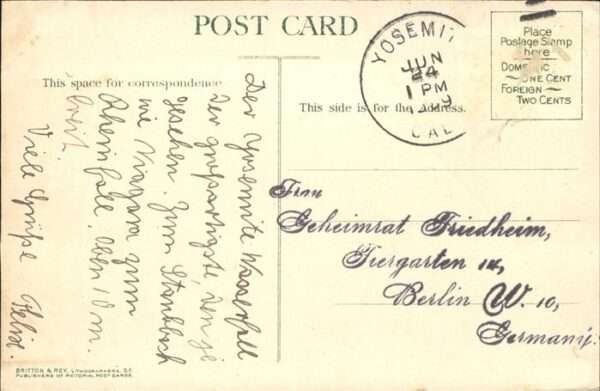 POST CARD
This space for correspondence
This side is for the Address.
YOSEMIT
JUN
24
1 PM
CAL
Place
Postage Stamp
here
DOMESTIC
ONE CENT
FOREIGN
TWO CENTS
Der Yosemite Wasserfall
der großartigste, den je
gesehen. Zum Staubbach
wie Niagara zum
Rheinfall. Oben 10 m.
breit.
Viele Grüße Felix.
Frau
Geheimrat Friedheim,
Tiergarten
Berlin W. 10,
Germany.
BRITTON & REY, LITHOGRAPHERS, S.F.
PUBLISHERS OF PICTORIAL POST CARDS.